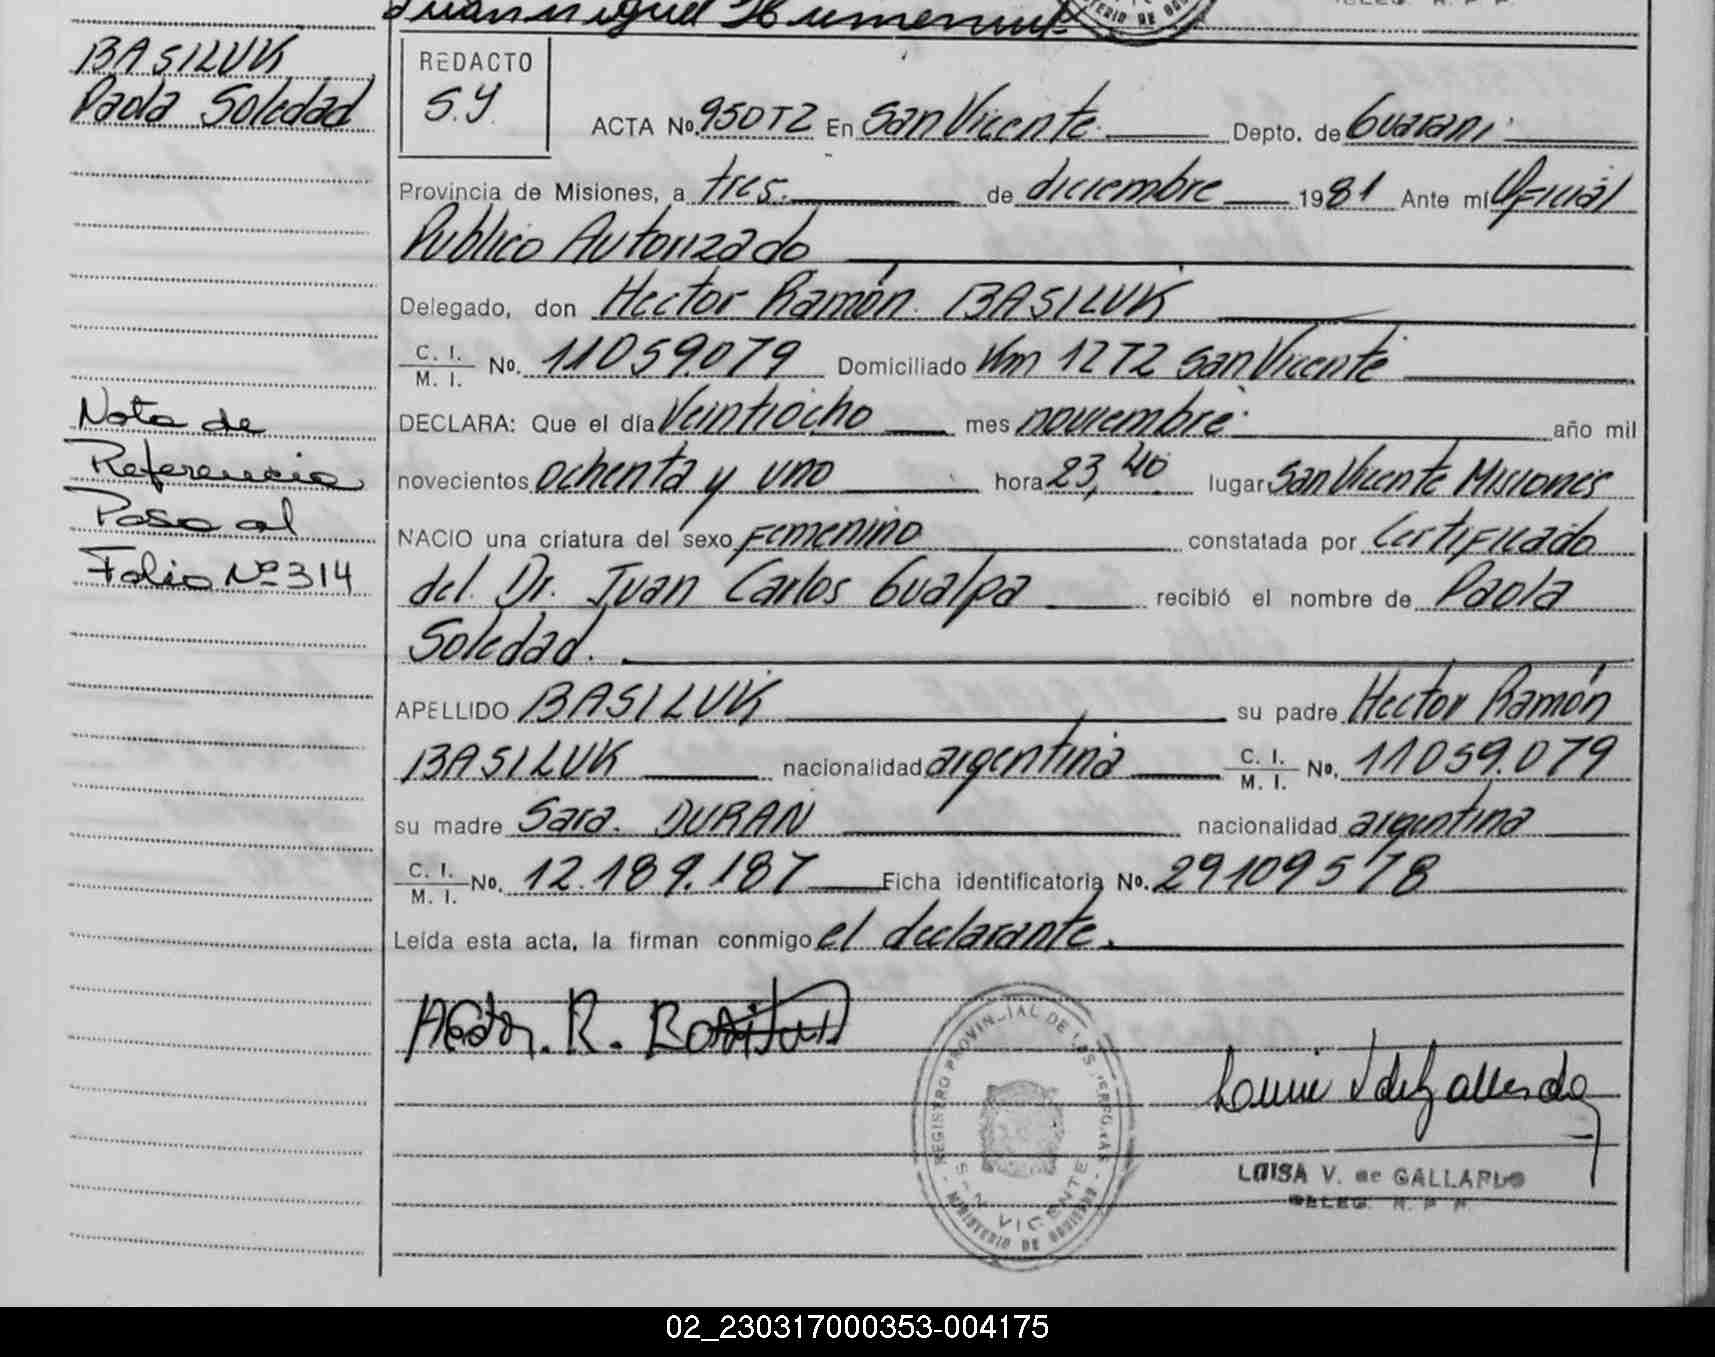 Juan Miguel
MINISTERIO DE GOB
BASILUK
Paola Soledad
REDACTO
S.Y.
ACTA No. 950T2 En San Vicente. Depto. de Guarani
Provincia de Misiones, a tres. de diciembre 1981 Ante mi Oficial
Publico Autorizado
Delegado, don Hector Ramón. BASILUK
C. I.
M. I. No. 11059.079 Domiciliado Km 1272 San Vicente
DECLARA: Que el día Veintiocho mes noviembre. año mil
novecientos ochenta y uno hora 23,40 lugar San Vicente Misiones
NACIO una criatura del sexo Femenino constatada por Certificado
del. Dr. Juan Carlos Gualpa recibió el nombre de Paola
Soledad.
APELLIDO BASILUK su padre Hector Ramón
BASILUK nacionalidad argentina C. I.
M. I. No. 11059.079
su madre Sara. DURAN nacionalidad argentina
C. I.
M. I. No. 12.189.187 Ficha identificatoria No. 29109578
Leída esta acta, la firman conmigo el declarante.
Nota de
Referencia
Paso al
Folio Nº 314
Hector. R. Basiluk
REGISTRO PROVINCIAL DE LAS PERSONAS
SAN VICENTE
MINISTERIO DE GOBIERNO
LUISA V. de GALLARDO
DELEG. R. P. P.
02_230317000353-004175